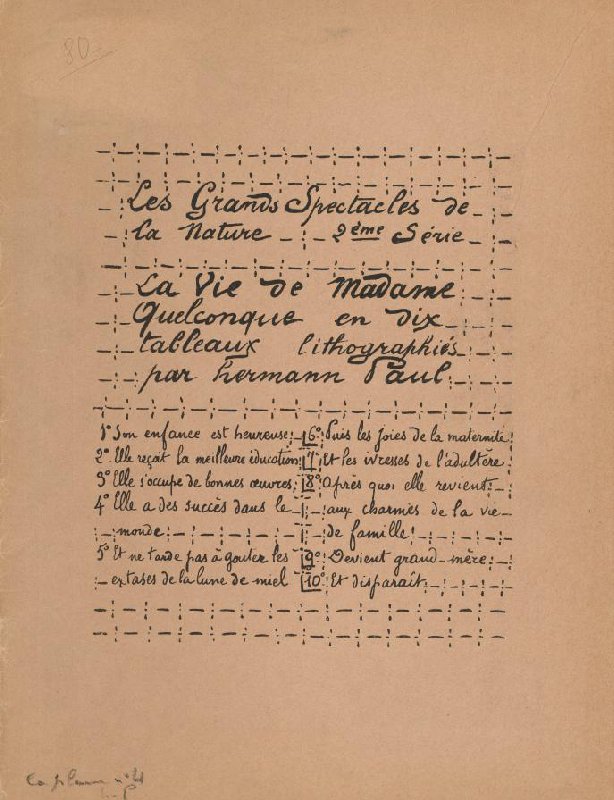 80
Les Grands Spectacles de
la Nature 2ème Série
La Vie de Madame
Quelconque en dix
tableaux lithographiés
par hermann Paul
1° Son enfance est heureuse
2° Elle reçoit la meilleure éducation
3° Elle s'occupe de bonnes œuvres
4° Elle a des succès dans le
monde
5° Et ne tarde pas à goûter les
extases de la lune de miel
6° Puis les joies de la maternité
7° Et les ivresses de l'adultère
8° Après quoi elle revient
aux charmes de la vie
de famille
9° Devient grand-mère
10° Et disparait